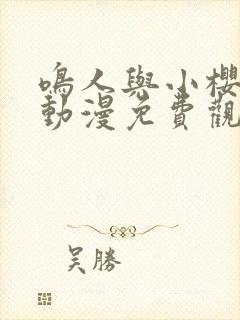 鳴人與小櫻
動漫免費觀
吴勝